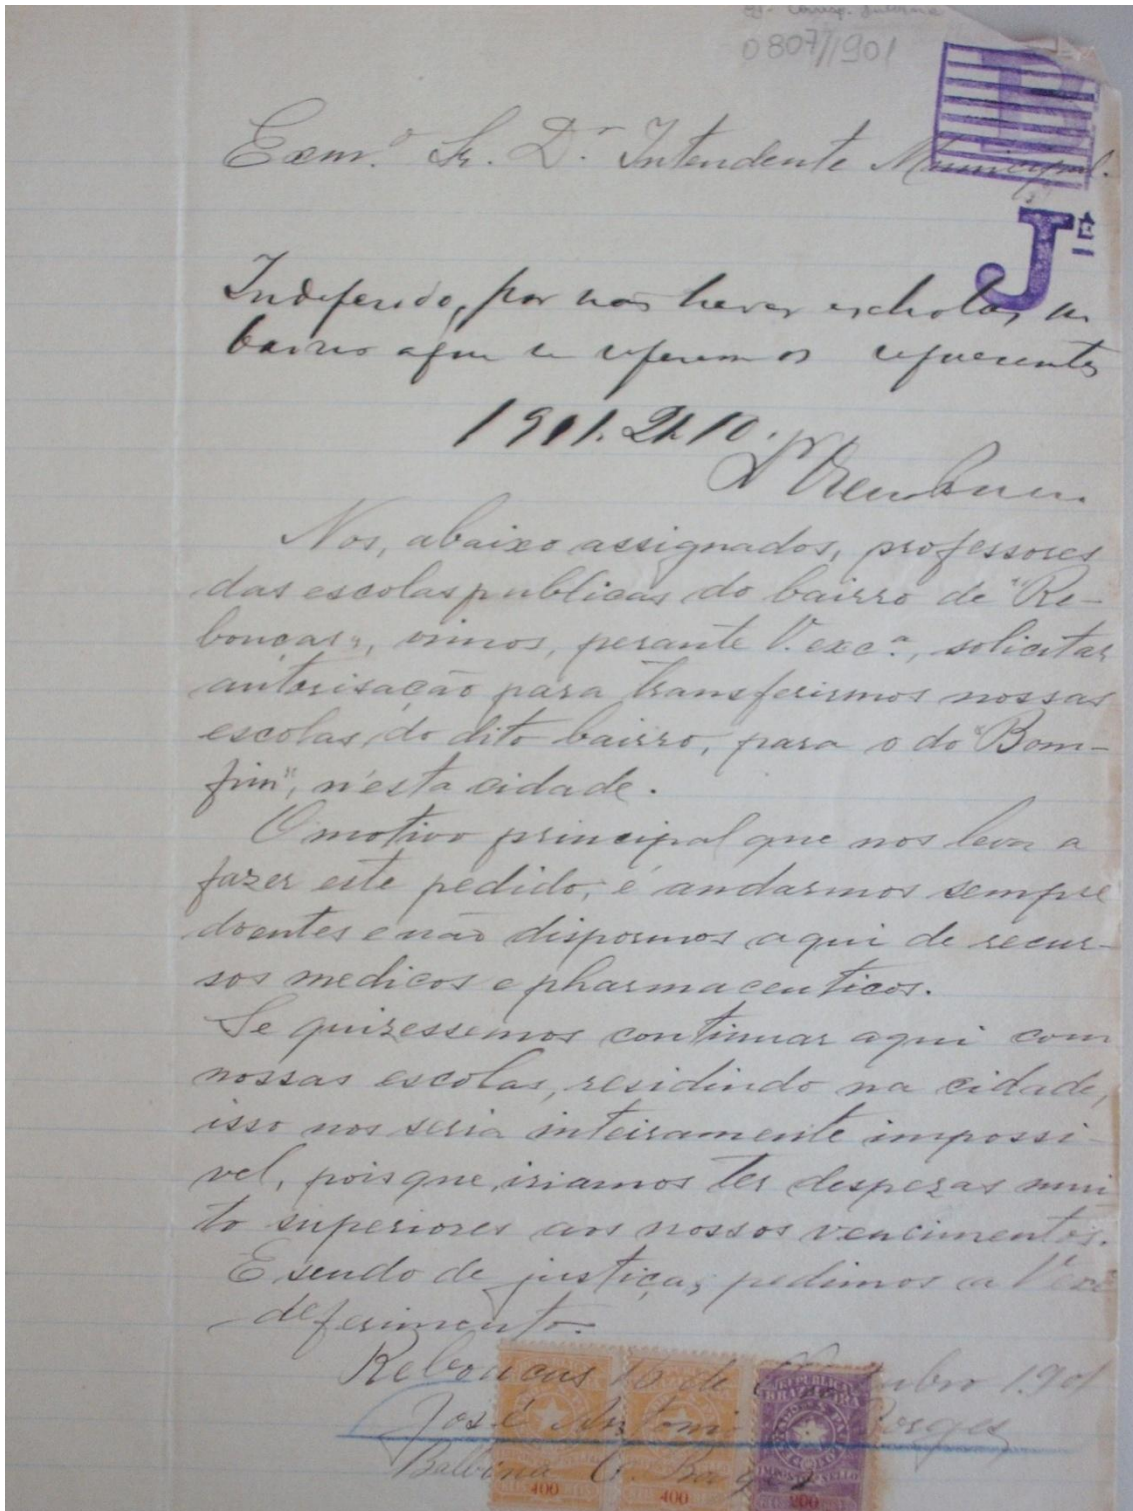 0807//901
Exm.º Sr. Dr. Intendente Municipal.
J.E
Indeferido, por não haver escholas, no
bairro a que se referem os requerentes
1901. 21. 10.
Nos, abaixo assignados, professores
das escolas publicas do bairro de "Re-
bouças", vimos, perante V. exc.ª, solicitar
autorisação para transferirmos nossas
escolas, do dito bairro, para o do "Bom-
fim", n'esta cidade.
O motivo principal que nos leva a
fazer este pedido, é andarmos sempre
doentes e não dispormos aqui de recur-
sos medicos e pharmaceuticos.
Se quizessemos continuar aqui com
nossas escolas, residindo na cidade,
isso nos seria inteiramente impossi-
vel, pois que, iriamos ter despezas mui
to superiores aos nossos vencimentos.
E sendo de justiça, pedimos a V. exc
deferimento.
Rebouças 16 de tubro 1901
José Antoni Borges
Balbina C. Borges
REPUBLICA
BRAZILEIRA
400
400
200